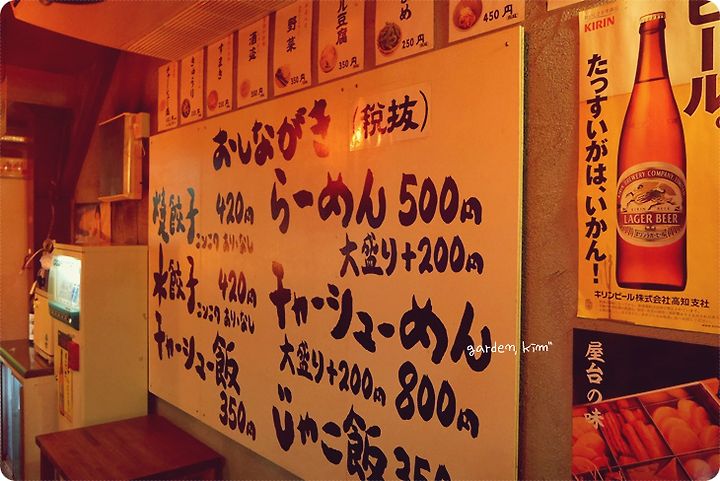 酒盗
350円
野菜
350円
豆腐
350円
250円
450円
おしながき (税抜)
焼餃子 420円
ニンニク あり・なし
水餃子 420円
ニンニク あり・なし
チャーシュー飯
350円
らーめん 500円
大盛り+200円
チャーシューめん
大盛り+200円 800円
じゃこ飯 350
garden, kim"
KIRIN
ビール。
たっすいがは、いかん!
KIRIN BREWERY COMPANY
LAGER BEER
キリンビール株式会社高知支社
屋台の味